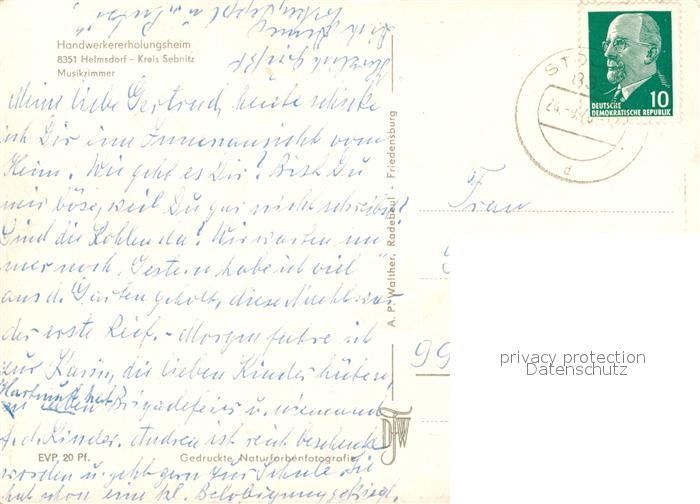 Handwerkererholungsheim
8351 Helmsdorf - Kreis Sebnitz
Musikzimmer
Meine liebe Gertrud, heute schicke
ich Dir eine Innenansicht vom
Heim. Wie geht es Dir? Bist Du
mir böse, weil Du gar nicht schreibst?
Sind die Kohlen da? Wir warten im
mer noch. Gestern habe ich viel
aus d. Garten geholt, diese Nacht war
der erste Reif. - Morgen fahre ich
zur Karin, die lieben Kinder hüten,
Hartmut hat
Brigadefeier u. niemand
f. d. Kinder. Andrea ist reich beschenkt
worden u. geht gern zur Schule. Sie
hat schon eine kl. Belobigung gekriegt.
EVP, 20 Pf.
Gedruckte Naturfarbenfotografie
A. P. Walther, Radebeul - Friedensburg
DEUTSCHE
DEMOKRATISCHE REPUBLIK
10
d
Frau
99
privacy protection
Datenschutz